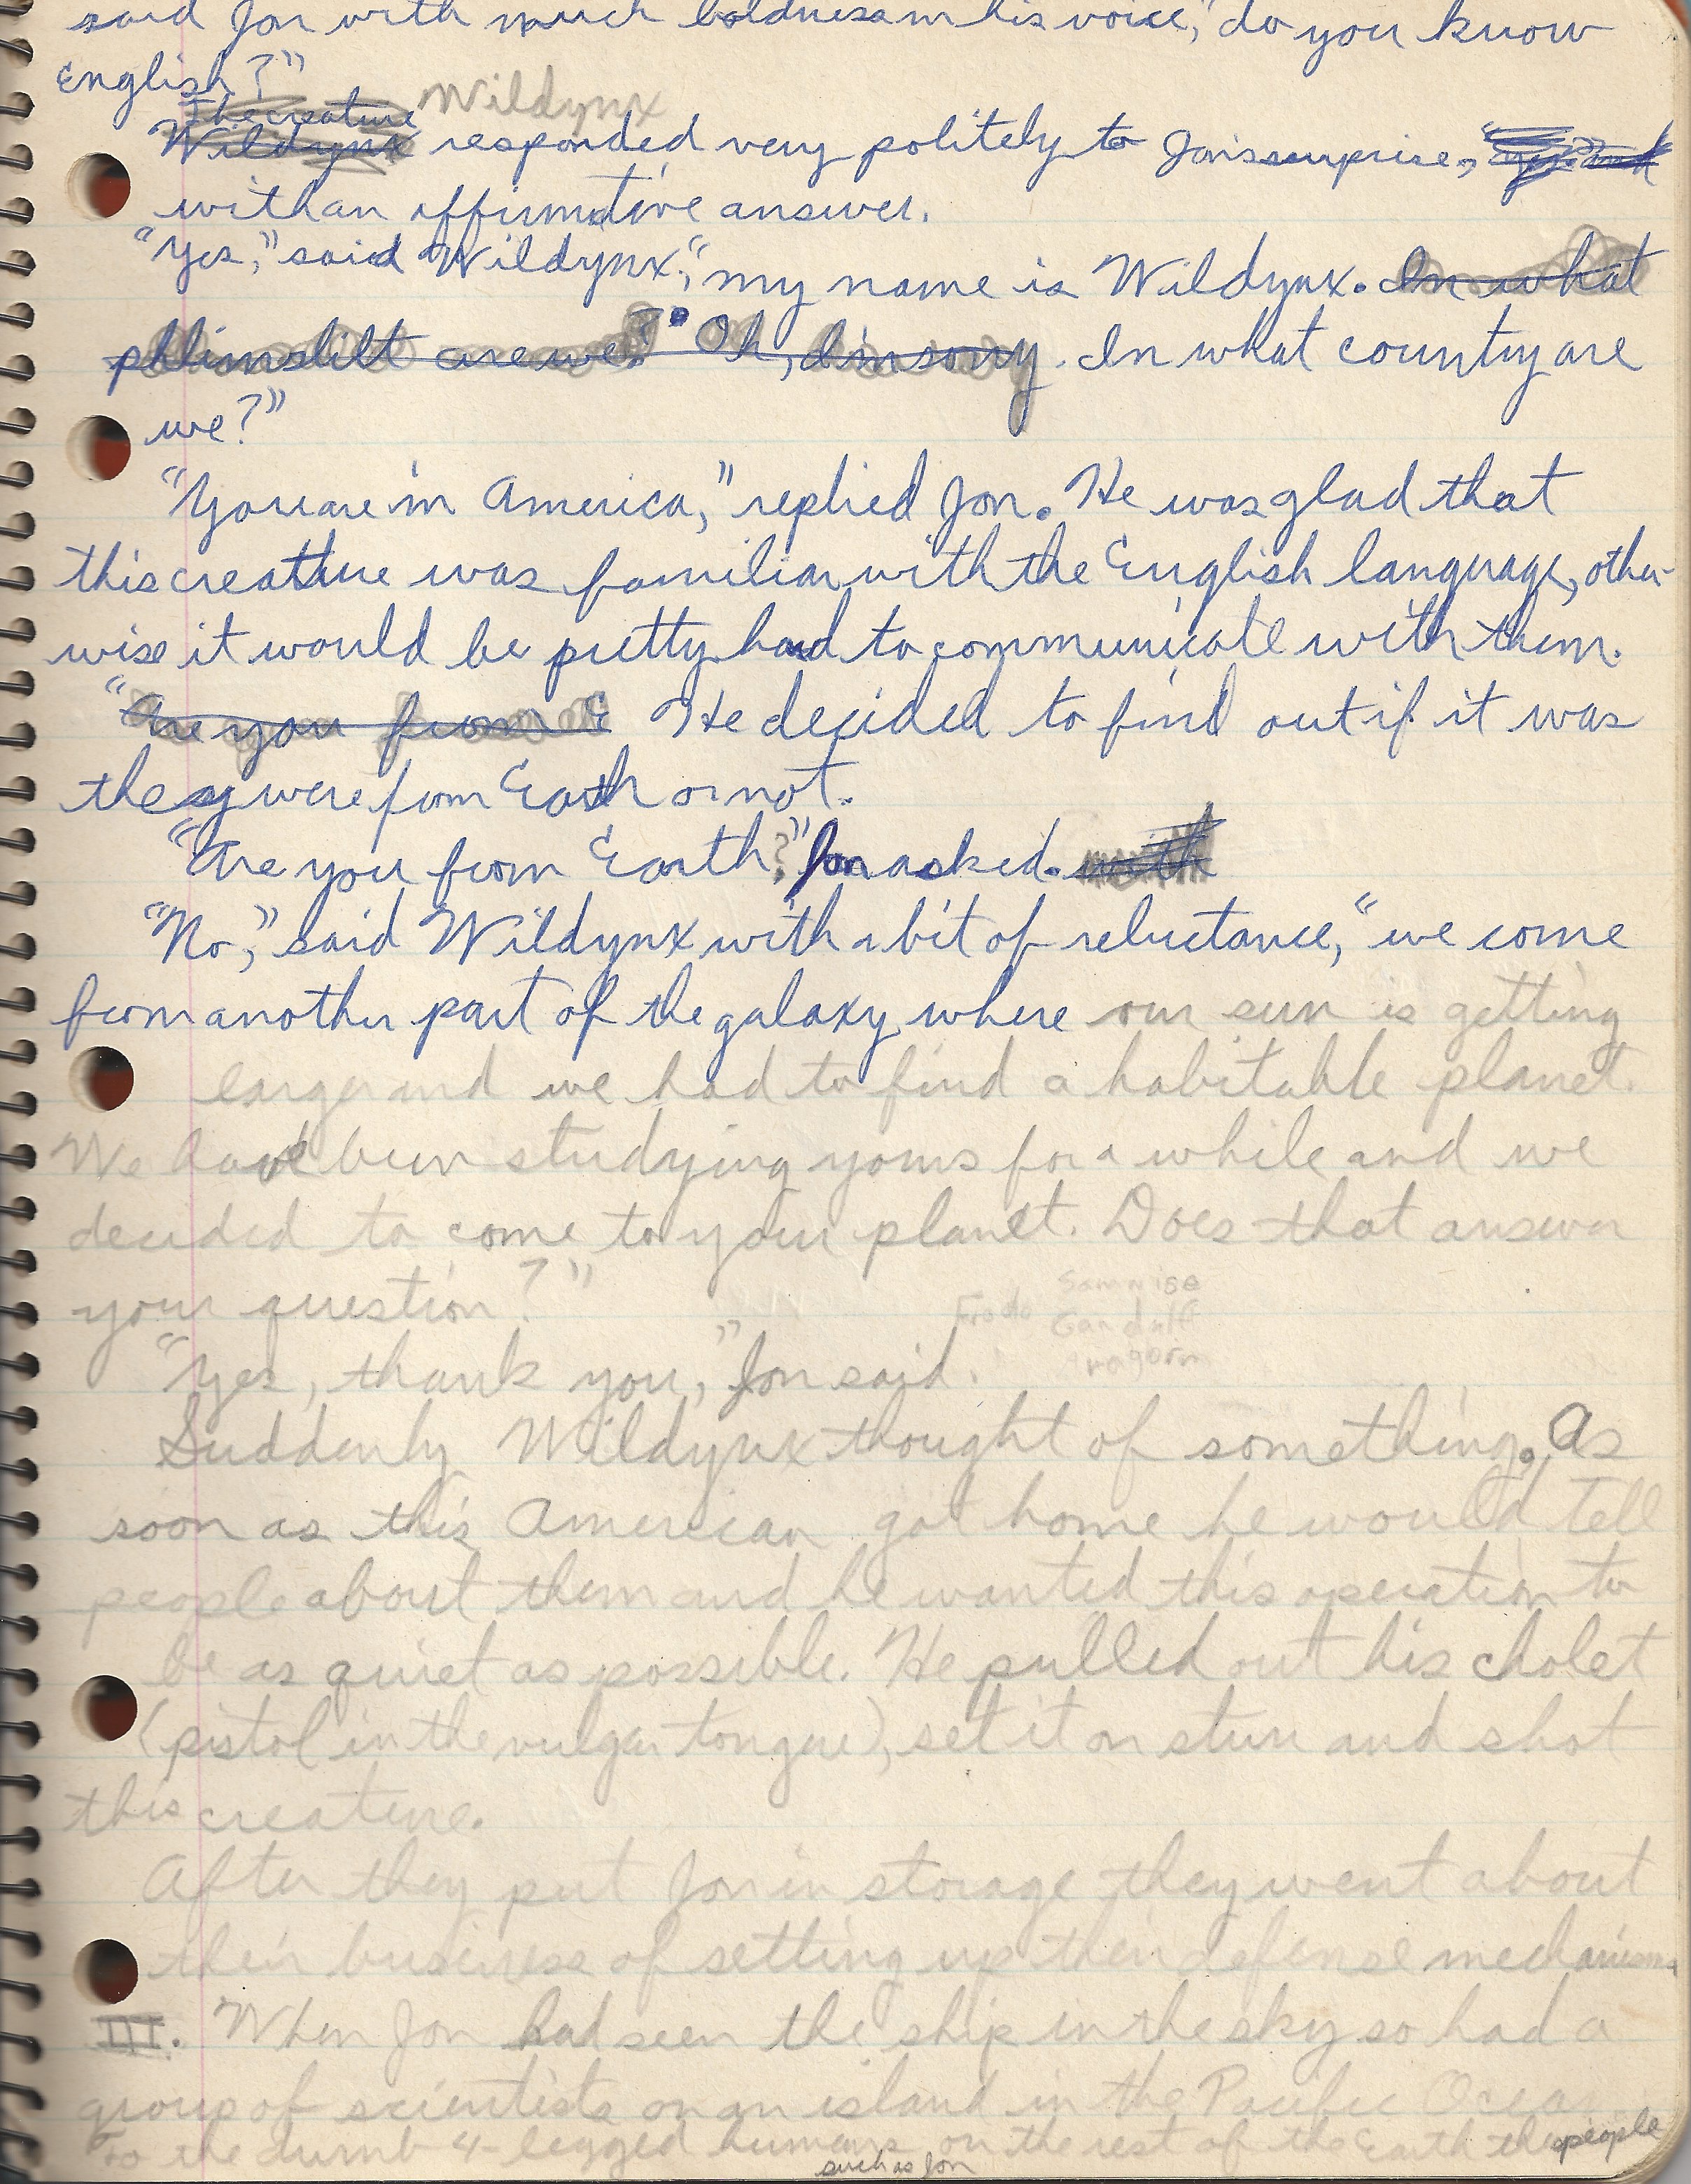 said Jon with much boldness in his voice, "do you know
English?"
The creature Wildynx
Wildynx responded very politely to Jon's surprise,
with an affirmative answer.
"Yes," said Wildynx, "my name is Wildynx. In what
phlimslilt are we?" Oh, I'm sorry. In what country are
we?"
"You are in America," replied Jon. He was glad that
this creature was familiar with the English language, other-
wise it would be pretty hard to communicate with them.
"Are you from E He decided to find out if it was
they were from Earth or not.
"Are you from Earth?" Jon asked. with
"No," said Wildynx with a bit of reluctance, "we come
from another part of the galaxy where our sun is getting
larger and we had to find a habitable planet.
We have been studying yours for a while and we
decided to come to your planet. Does that answer
your question?"
Samwise
Frodo Gandalf
Aragorn
"Yes, thank you," Jon said.
Suddenly Wildynx thought of something. As
soon as this American got home he would tell
people about them and he wanted this operation to
be as quiet as possible. He pulled out his cholet
(pistol in the vulgar tongue), set it on stun and shot
this creature.
After they put Jon in storage they went about
their business of setting up their defense mechanisms
III. When Jon had seen the ship in the sky so had a
group of scientists on an island in the Pacific Ocean.
To the dumb 4-legged humans on the rest of the Earth these people
such as Jon